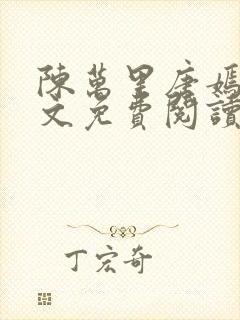 陳萬里唐嫣
文免費閱讀
丁宏奇